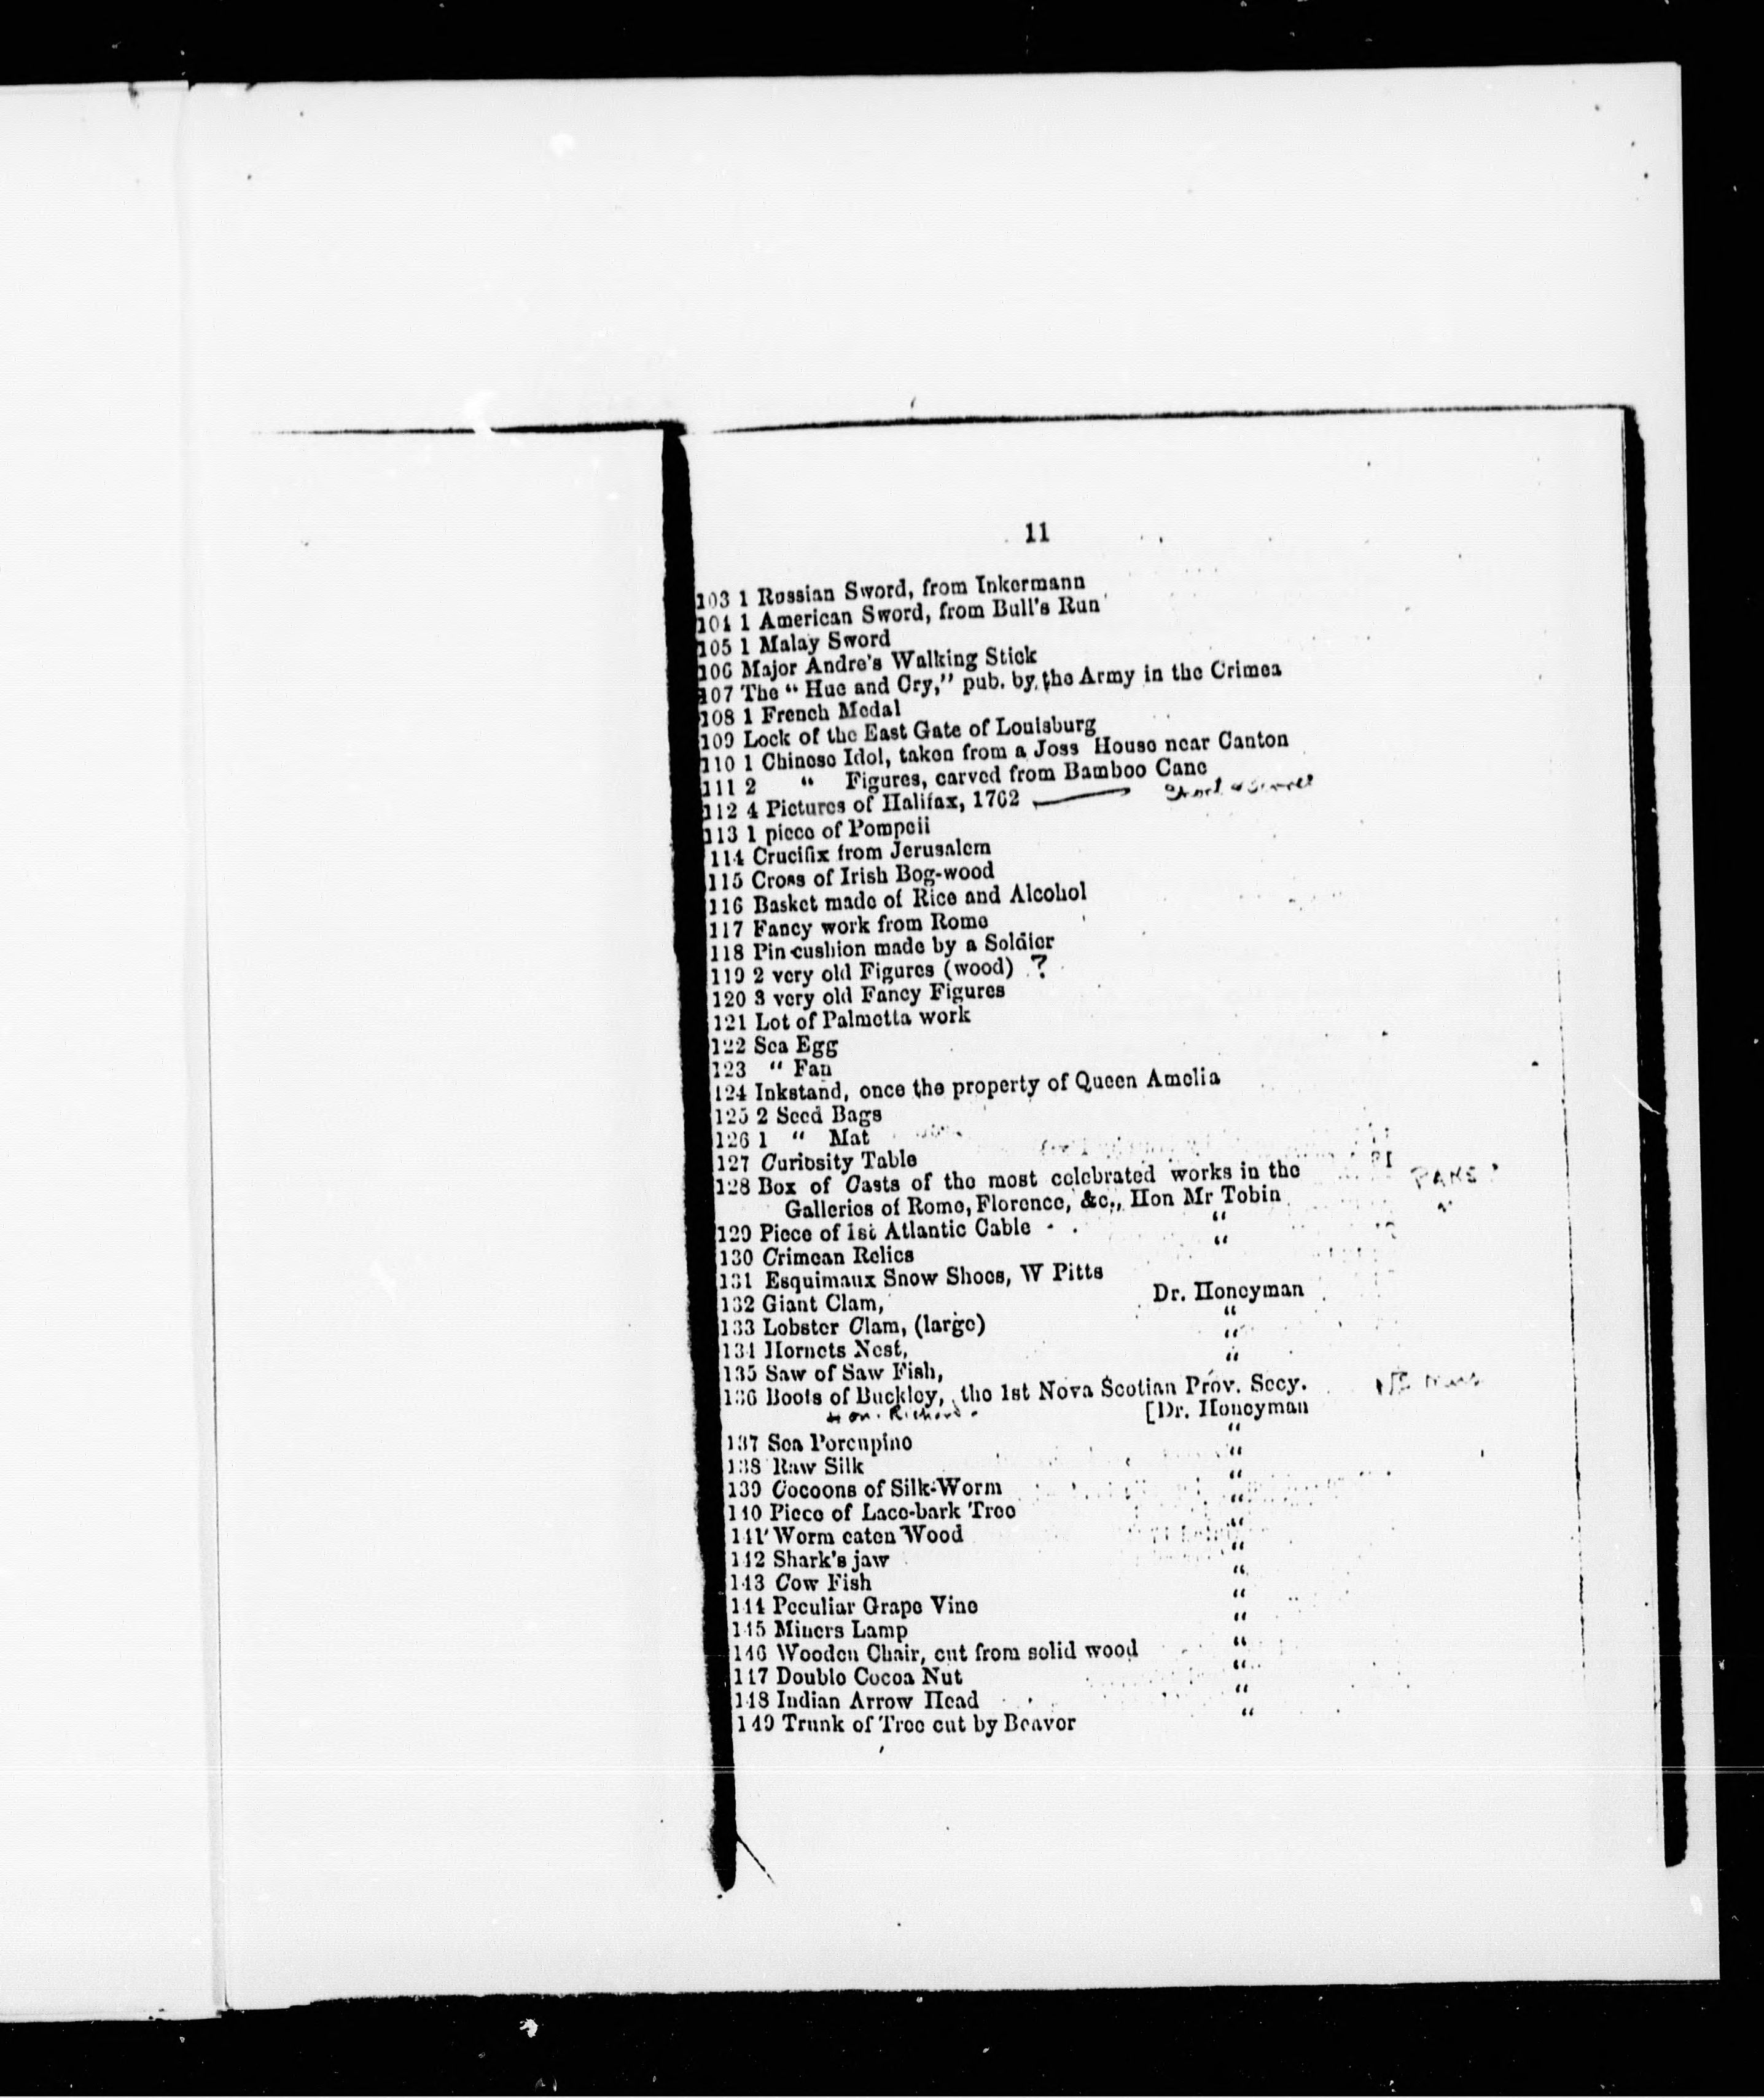 11
103 1 Russian Sword, from Inkermann
104 1 American Sword, from Bull's Run
105 1 Malay Sword
106 Major Andre's Walking Stick
107 The “ Hue and Cry,” pub. by the Army in the Crimea
108 1 French Medal
109 Lock of the East Gate of Louisburg
110 1 Chinese Idol, taken from a Joss House near Canton
111 2 “ Figures, carved from Bamboo Cane
112 4 Pictures of Halifax, 1762
113 1 piece of Pompeii
114 Crucifix from Jerusalem
115 Cross of Irish Bog-wood
116 Basket made of Rice and Alcohol
117 Fancy work from Rome
118 Pin-cushion made by a Soldier
119 2 very old Figures (wood) ?
120 3 very old Fancy Figures
121 Lot of Palmetta work
122 Sea Egg
123 “ Fan
124 Inkstand, once the property of Queen Amelia
125 2 Seed Bags
126 1 “ Mat
127 Curiosity Table
128 Box of Casts of the most celebrated works in the
Galleries of Rome, Florence, &c., Hon Mr Tobin
129 Piece of 1st Atlantic Cable “
130 Crimean Relics “
131 Esquimaux Snow Shoes, W Pitts
132 Giant Clam, Dr. Honeyman
133 Lobster Clam, (large) “
134 Hornets Nest, “
135 Saw of Saw Fish, “
136 Boots of Buckley, the 1st Nova Scotian Prov. Secy.
Hon. Richard. [Dr. Honeyman
137 Sea Porcupine “
138 Raw Silk “
139 Cocoons of Silk-Worm “
140 Piece of Lace-bark Tree “
141 Worm eaten Wood “
142 Shark's jaw “
143 Cow Fish “
144 Peculiar Grape Vine “
145 Miners Lamp “
146 Wooden Chair, cut from solid wood “
147 Double Cocoa Nut “
148 Indian Arrow Head “
149 Trunk of Tree cut by Beaver “